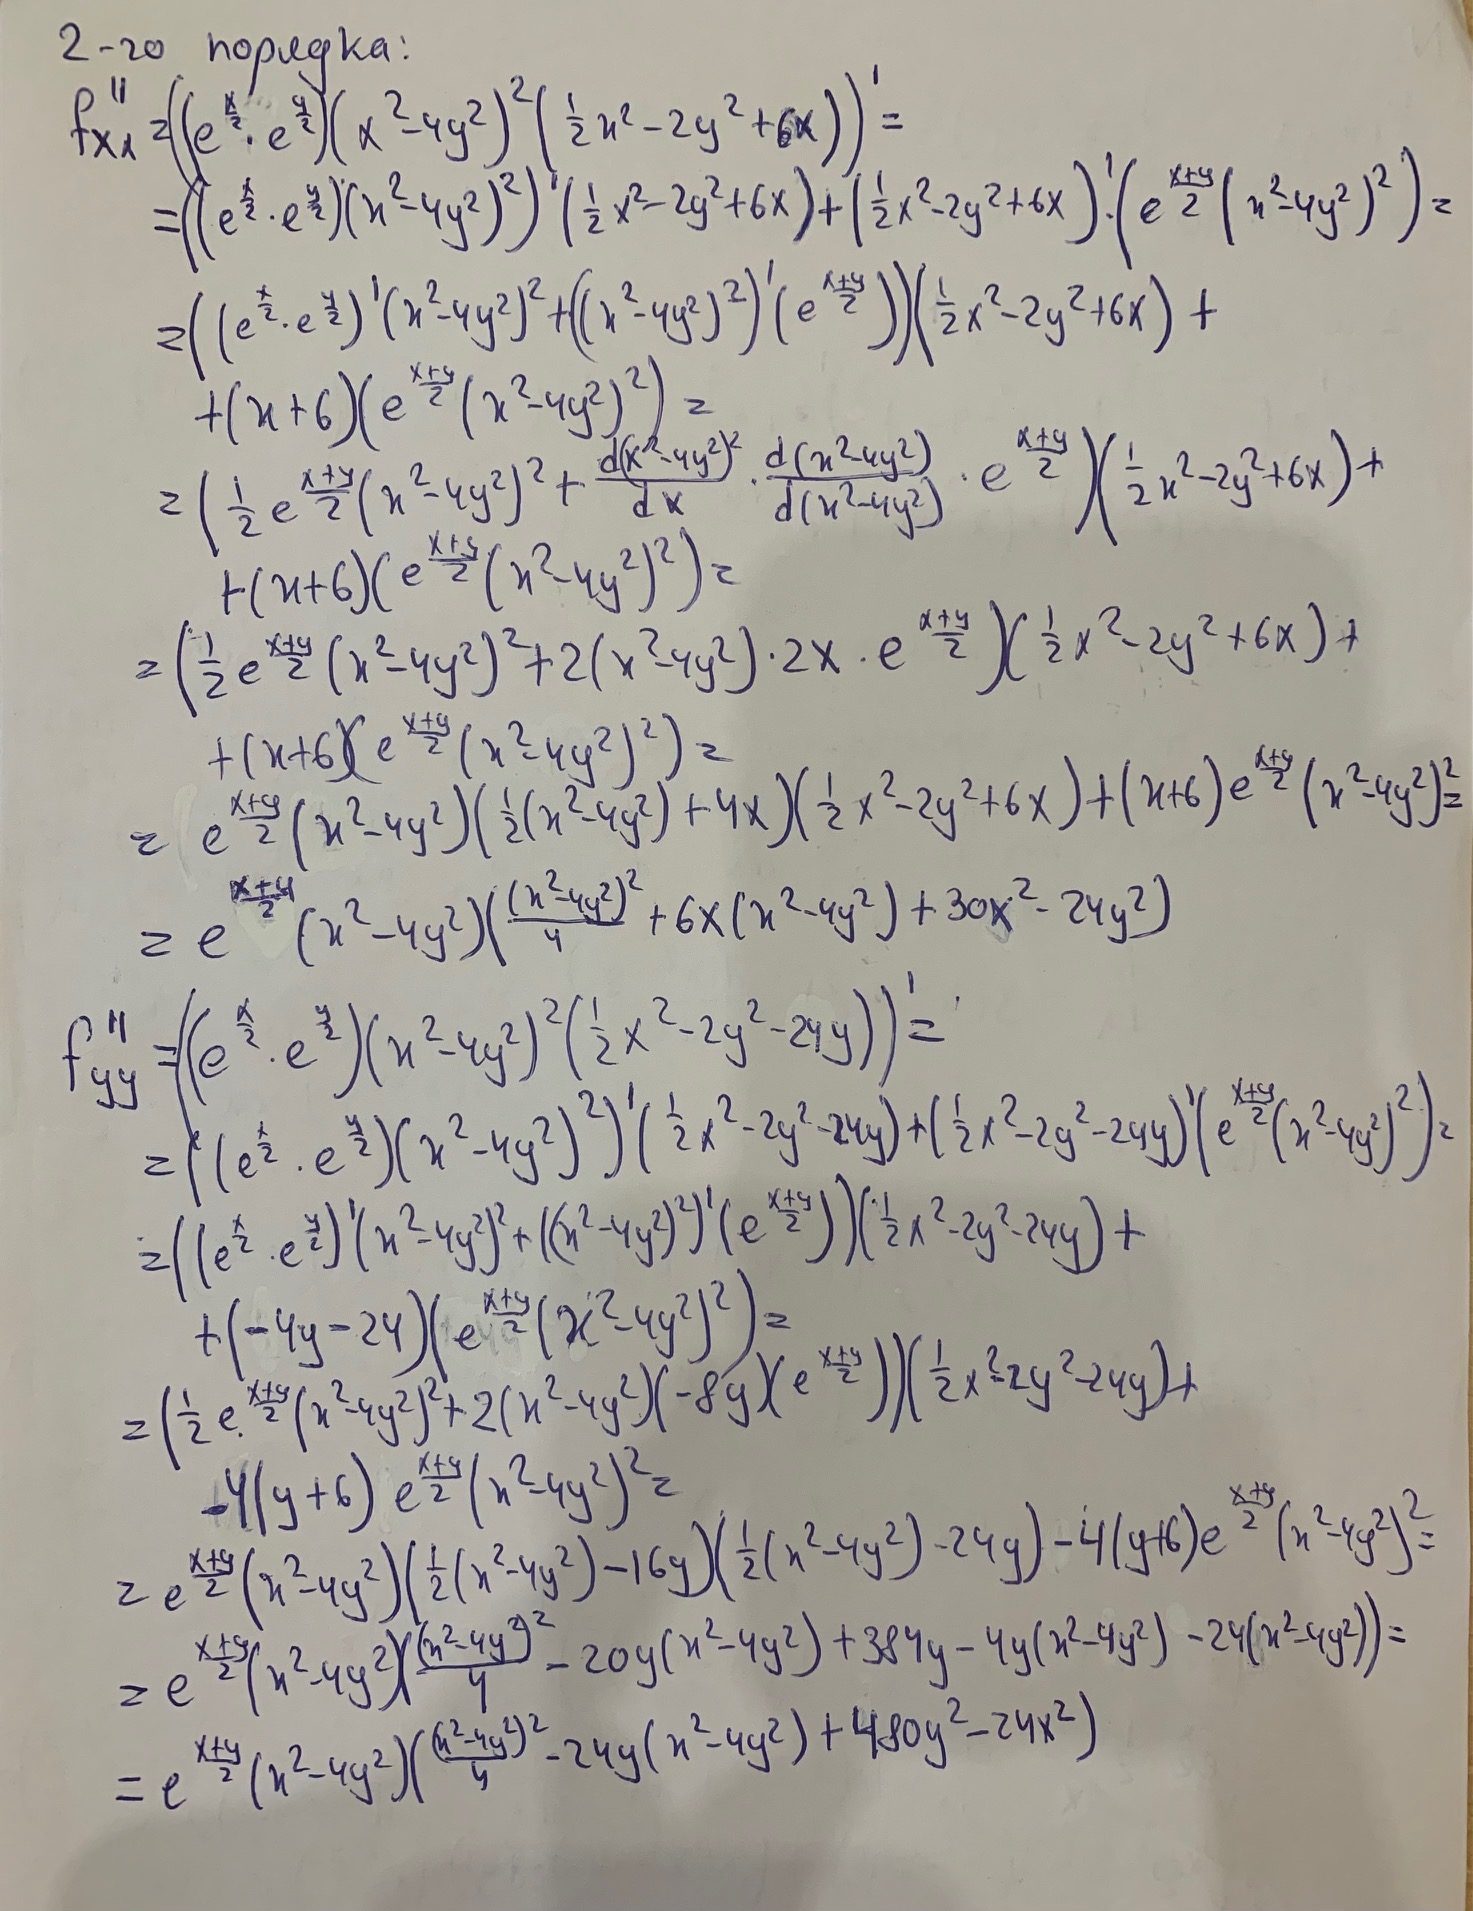 2-го порядка:
f''xx = ((e^(x/2) · e^(y/2))(x² - 4y²)²(1/2 x² - 2y² + 6x))' =
= ((e^(x/2) · e^(y/2))(x² - 4y²)²)'(1/2 x² - 2y² + 6x) + (1/2 x² - 2y² + 6x)' · (e^((x+y)/2)(x² - 4y²)²) =
= ((e^(x/2) · e^(y/2))'(x² - 4y²)² + ((x² - 4y²)²)'(e^((x+y)/2)))(1/2 x² - 2y² + 6x) +
+ (x + 6)(e^((x+y)/2)(x² - 4y²)²) =
= (1/2 e^((x+y)/2)(x² - 4y²)² + d(x² - 4y²)²/dx · d(x² - 4y²)/d(x² - 4y²) · e^((x+y)/2))(1/2 x² - 2y² + 6x) +
+ (x + 6)(e^((x+y)/2)(x² - 4y²)²) =
= (1/2 e^((x+y)/2)(x² - 4y²)² + 2(x² - 4y²) · 2x · e^((x+y)/2))(1/2 x² - 2y² + 6x) +
+ (x + 6)(e^((x+y)/2)(x² - 4y²)²) =
= e^((x+y)/2)(x² - 4y²)(1/2(x² - 4y²) + 4x)(1/2 x² - 2y² + 6x) + (x + 6)e^((x+y)/2)(x² - 4y²)² =
= e^((x+y)/2)(x² - 4y²)((x² - 4y²)²/4 + 6x(x² - 4y²) + 30x² - 24y²)
f''yy = ((e^(x/2) · e^(y/2))(x² - 4y²)²(1/2 x² - 2y² - 24y))' =
= ((e^(x/2) · e^(y/2))(x² - 4y²)²)'(1/2 x² - 2y² - 24y) + (1/2 x² - 2y² - 24y)'(e^((x+y)/2)(x² - 4y²)²) =
= ((e^(x/2) · e^(y/2))'(x² - 4y²)² + ((x² - 4y²)²)'(e^((x+y)/2)))(1/2 x² - 2y² - 24y) +
+ (-4y - 24)(e^((x+y)/2)(x² - 4y²)²) =
= (1/2 e^((x+y)/2)(x² - 4y²)² + 2(x² - 4y²)(-8y)(e^((x+y)/2)))(1/2 x² - 2y² - 24y) +
-4(y + 6) e^((x+y)/2)(x² - 4y²)² =
= e^((x+y)/2)(x² - 4y²)(1/2(x² - 4y²) - 16y)(1/2(x² - 4y²) - 24y) - 4(y+6)e^((x+y)/2)(x² - 4y²)² =
= e^((x+y)/2)(x² - 4y²)((x² - 4y²)²/4 - 20y(x² - 4y²) + 384y - 4y(x² - 4y²) - 24(x² - 4y²)) =
= e^((x+y)/2)(x² - 4y²)((x² - 4y²)²/4 - 24y(x² - 4y²) + 480y² - 24x²)